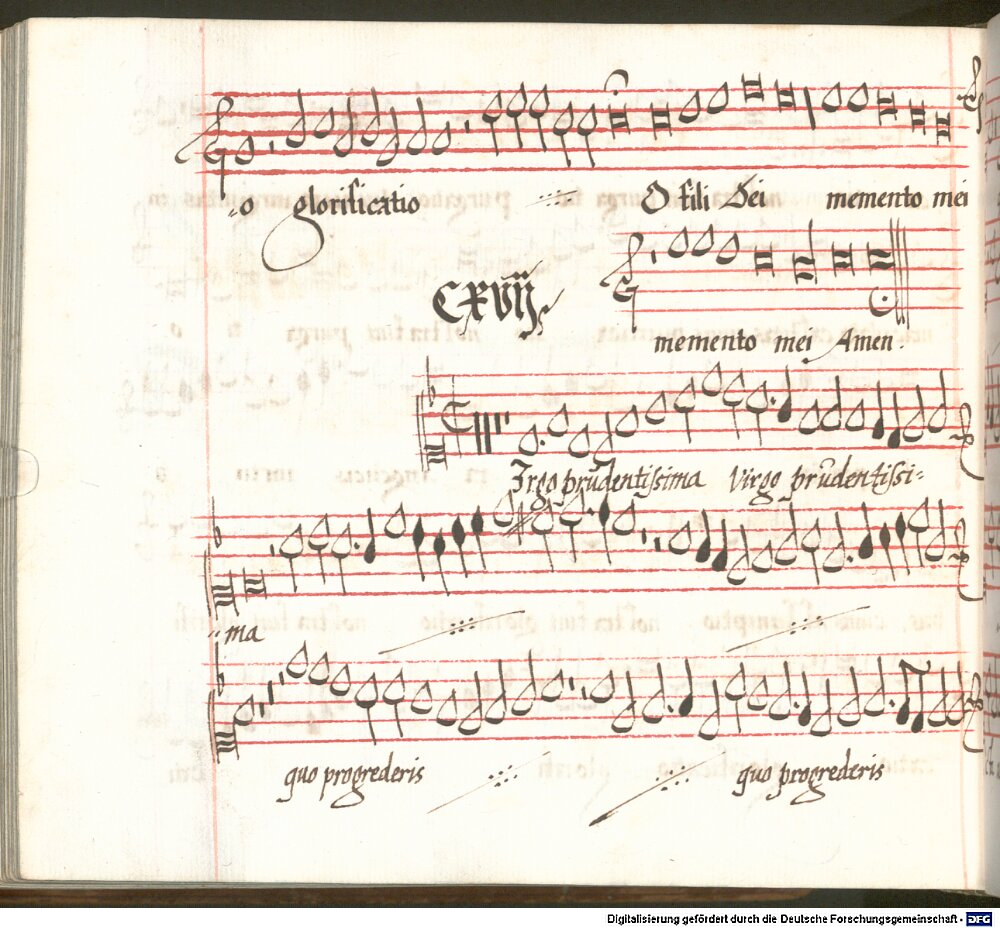 -o glorificatio O fili Dei memento mei
CXVIJ.
memento mei Amen.
Irgo prudentissima Virgo prudentissi-
-ma
quo progrederis quo progrederis
Digitalisierung gefördert durch die Deutsche Forschungsgemeinschaft - DFG